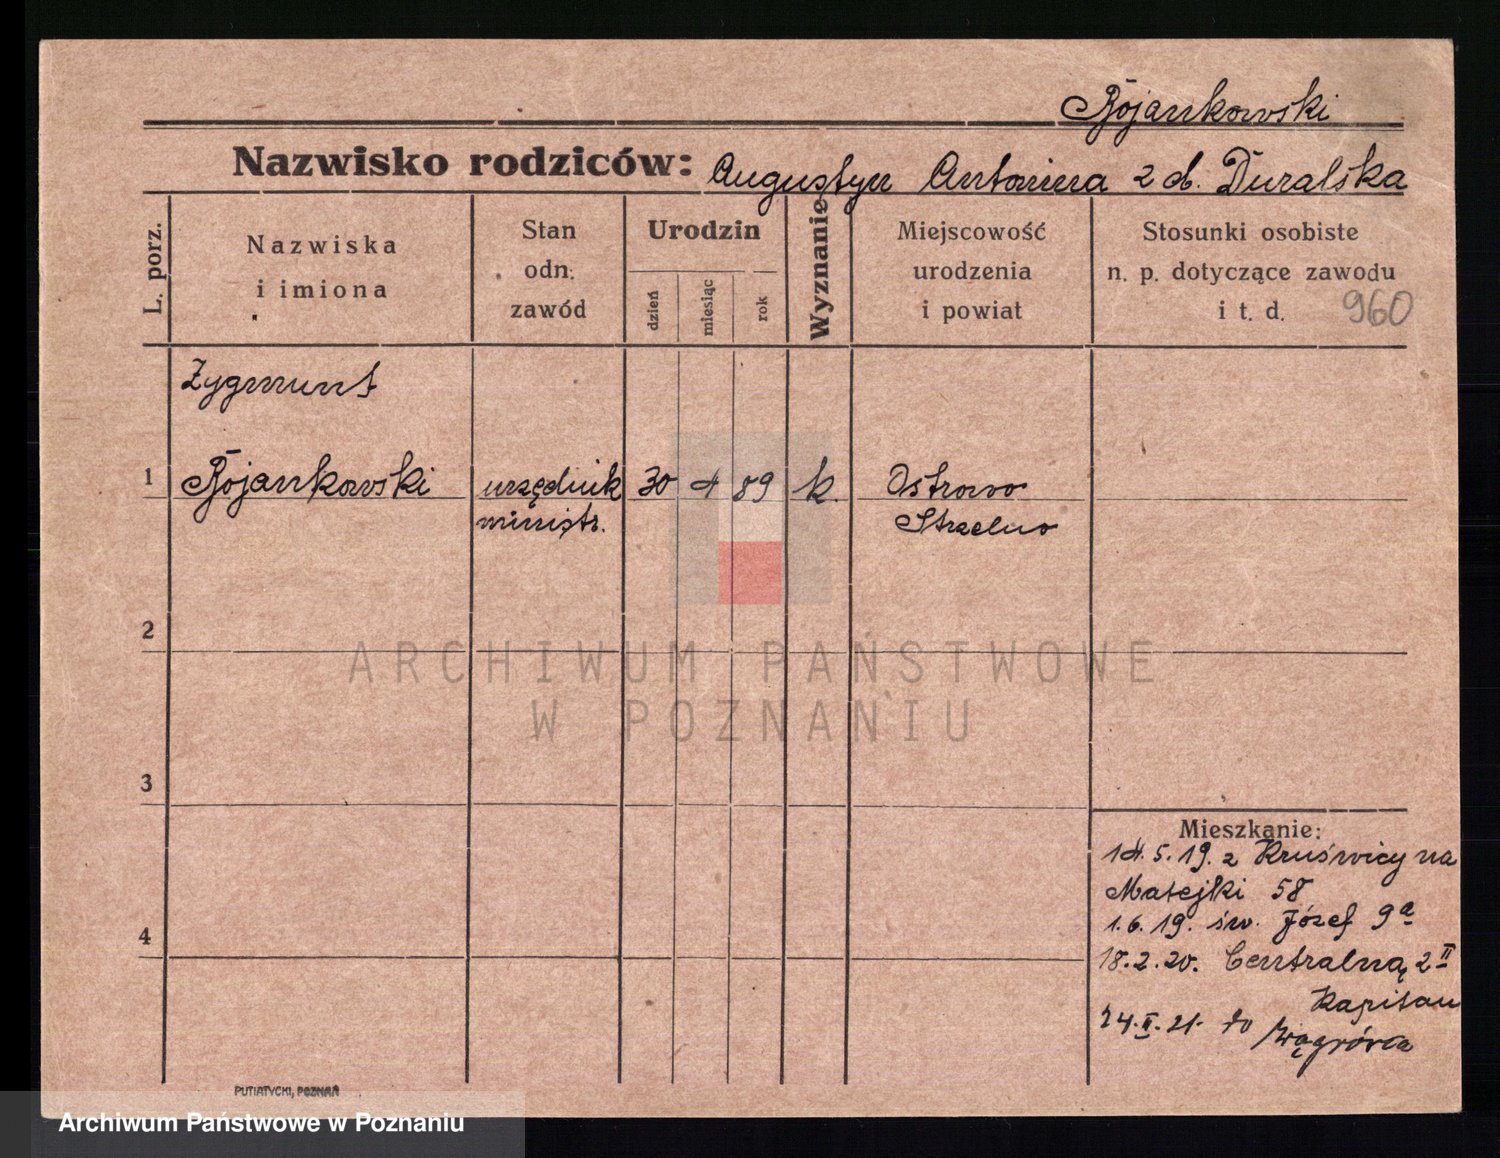 Rojankowski
Nazwisko rodziców: Augustyn Antonina z d. Duralska
L. porz.
Nazwiska
i imiona
Stan
odn.
zawód
Urodzin
dzień
miesiąc
rok
Wyznanie
Miejscowość
urodzenia
i powiat
Stosunki osobiste
n. p. dotyczące zawodu
i t. d. 960
Zygmunt
1 Rojankowski urzędnik 30 4 89 k. Ostrowo
ministr. Strzelno
2
ARCHIWUM PAŃSTWOWE
W POZNANIU
3
Mieszkanie:
14.5.19. z Kruświcy na
Matejki 58
1.6.19. św. Józef 9a
4
18.2.20. Centralną 2 II
Kapitan
24.II.21. do Wągrówca
PUTIATYCKI, POZNAŃ
Archiwum Państwowe w Poznaniu